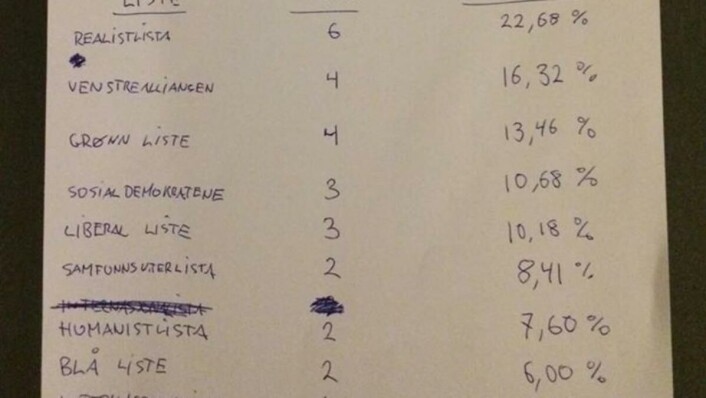 LISTE
REALISTLISTA 6 22,68 %
VENSTREALLIANGEN 4 16,32 %
GRØNN LISTE 4 13,46 %
SOSIALDEMOKRATENE 3 10,68 %
LIBERAL LISTE 3 10,18 %
SAMFUNNSVITERLISTA 2 8,41 %
HUMANISTLISTA 2 7,60 %
BLÅ LISTE 2 6,00 %